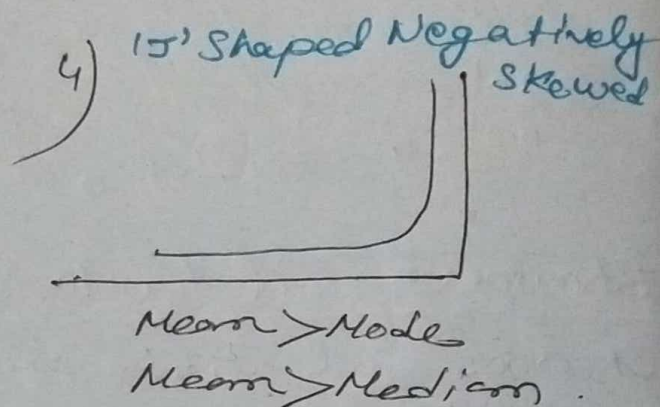 4) 'J' Shaped Negatively
Skewed
Mean > Mode
Mean > Median.